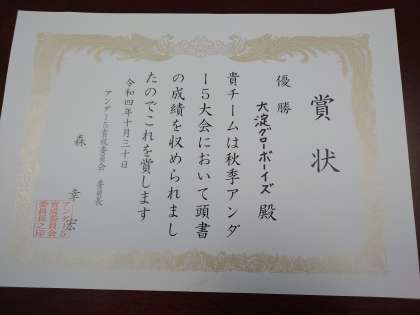 賞状
優勝
大淀グローボーイズ 殿
貴チームは秋季アンダ
ー5大会において頭書
の成績を収められまし
たのでこれを賞します
令和四年十月三十日
アンダー5育成委員会 委員長
森 幸宏
アンダー5
育成委員会
委員長之印